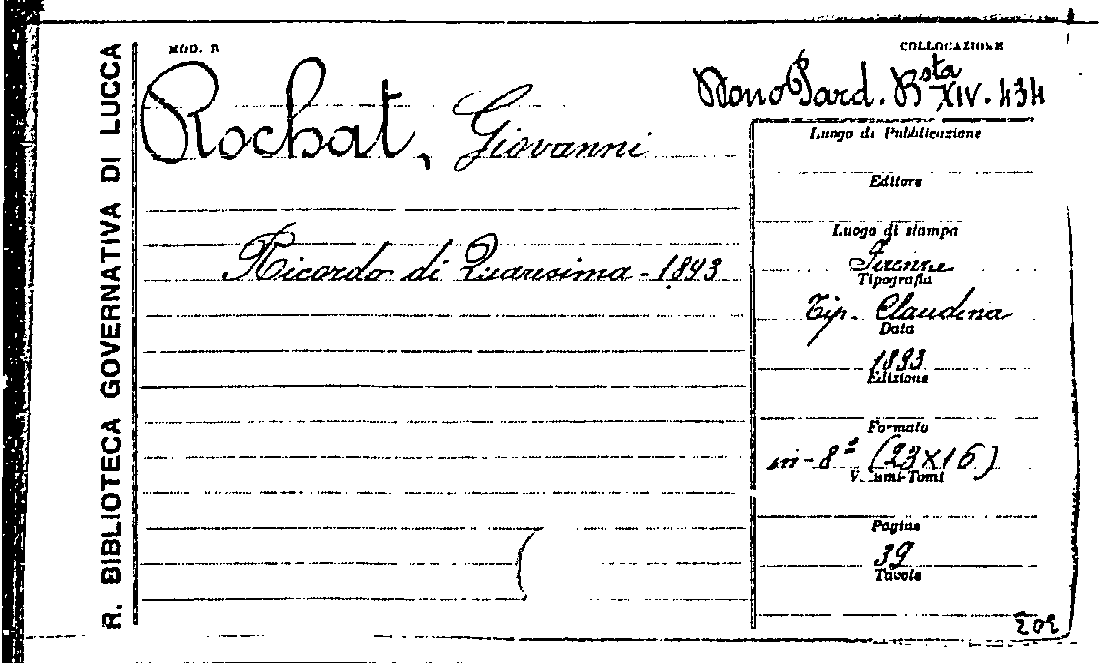 R. BIBLIOTECA GOVERNATIVA DI LUCCA
MOD. B
COLLOCAZIONE
Rochat, Giovanni
Mono Pard. Bsta XIV. 434
Ricordo di Quaresima - 1893
Luogo di Pubblicazione
Editore
Luogo di stampa
Firenze
Tipografia
Tip. Claudiana
Data
1893
Edizione
Formato
in-8º (23X16)
Volumi-Tomi
Pagine
39
Tavole
202